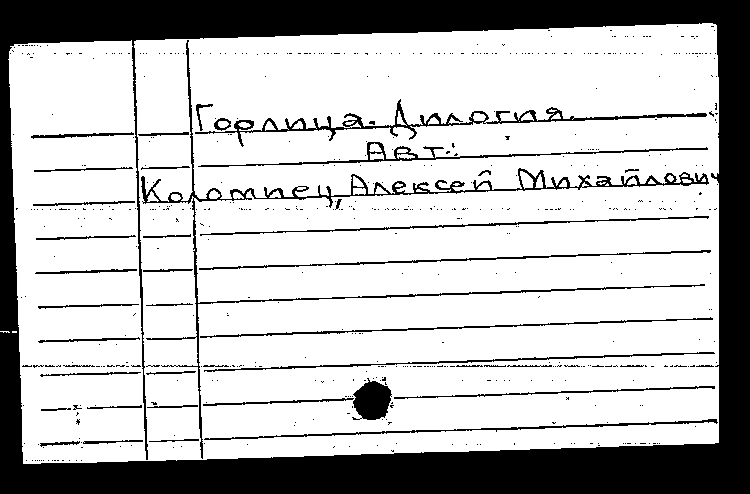 Горлица. Дилогия.
Авт.:
Коломиец, Алексей Михайлович